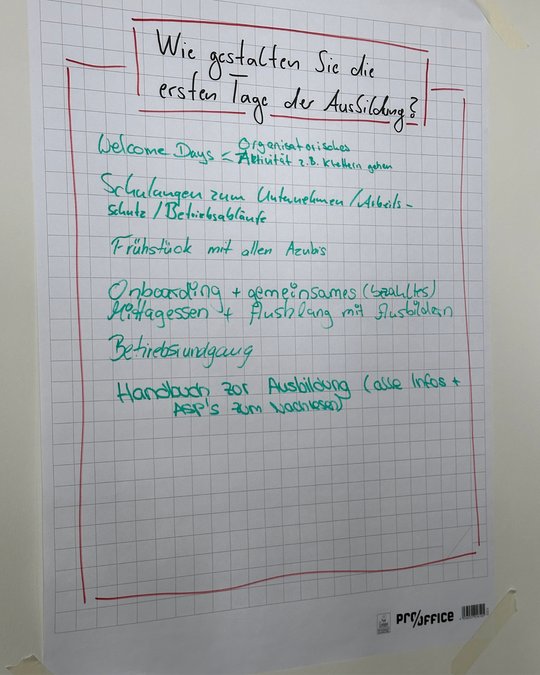 Wie gestalten Sie die
ersten Tage der Ausbildung?
Welcome Days < Organisatorisches
Aktivität z.B. Klettern gehen
Schulungen zum Unternehmen / Arbeits-
schutz / Betriebsabläufe
Frühstück mit allen Azubis
Onboarding + gemeinsames (bezahltes)
Mittagessen + Ausklang mit Ausbildern
Betriebsrundgang
Handbuch zur Ausbildung (alle Infos +
ASP's zum Nachlesen)
PRO/OFFICE